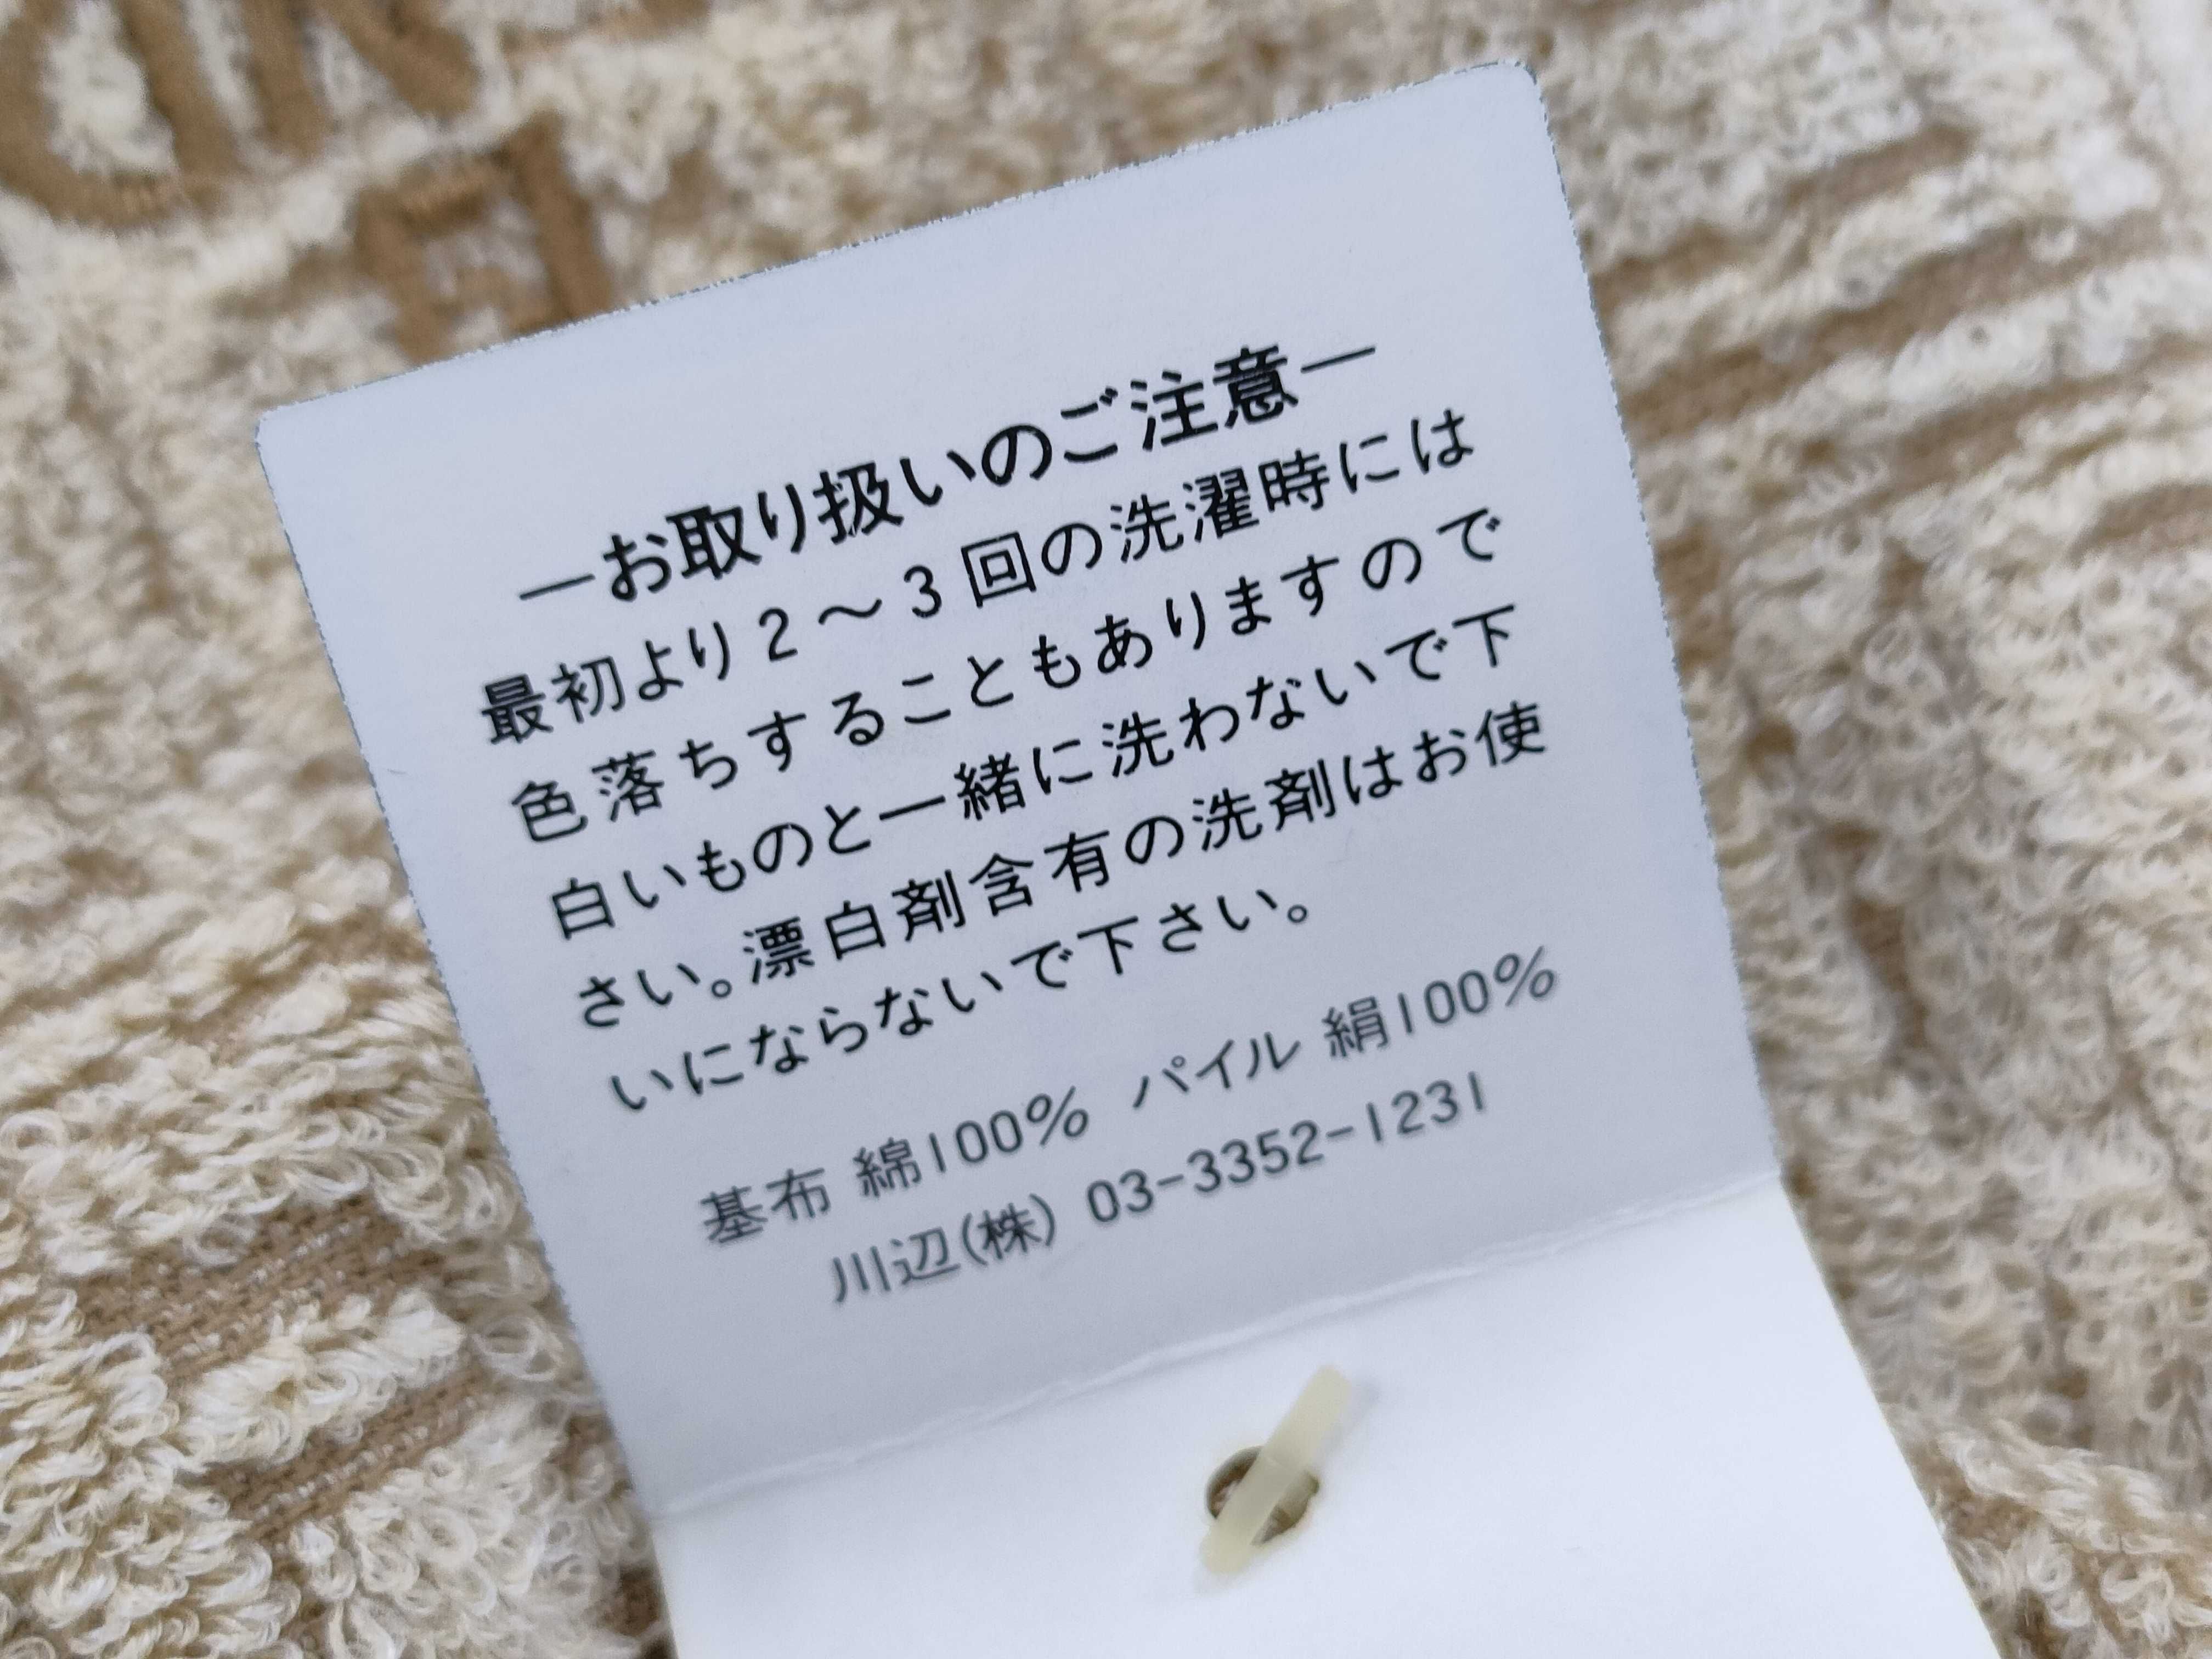 ―お取り扱いのご注意―
最初より2～3回の洗濯時には
色落ちすることもありますので
白いものと一緒に洗わないで下
さい。漂白剤含有の洗剤はお使
いにならないで下さい。
基布 綿100% パイル 絹100%
川辺(株) 03-3352-1231